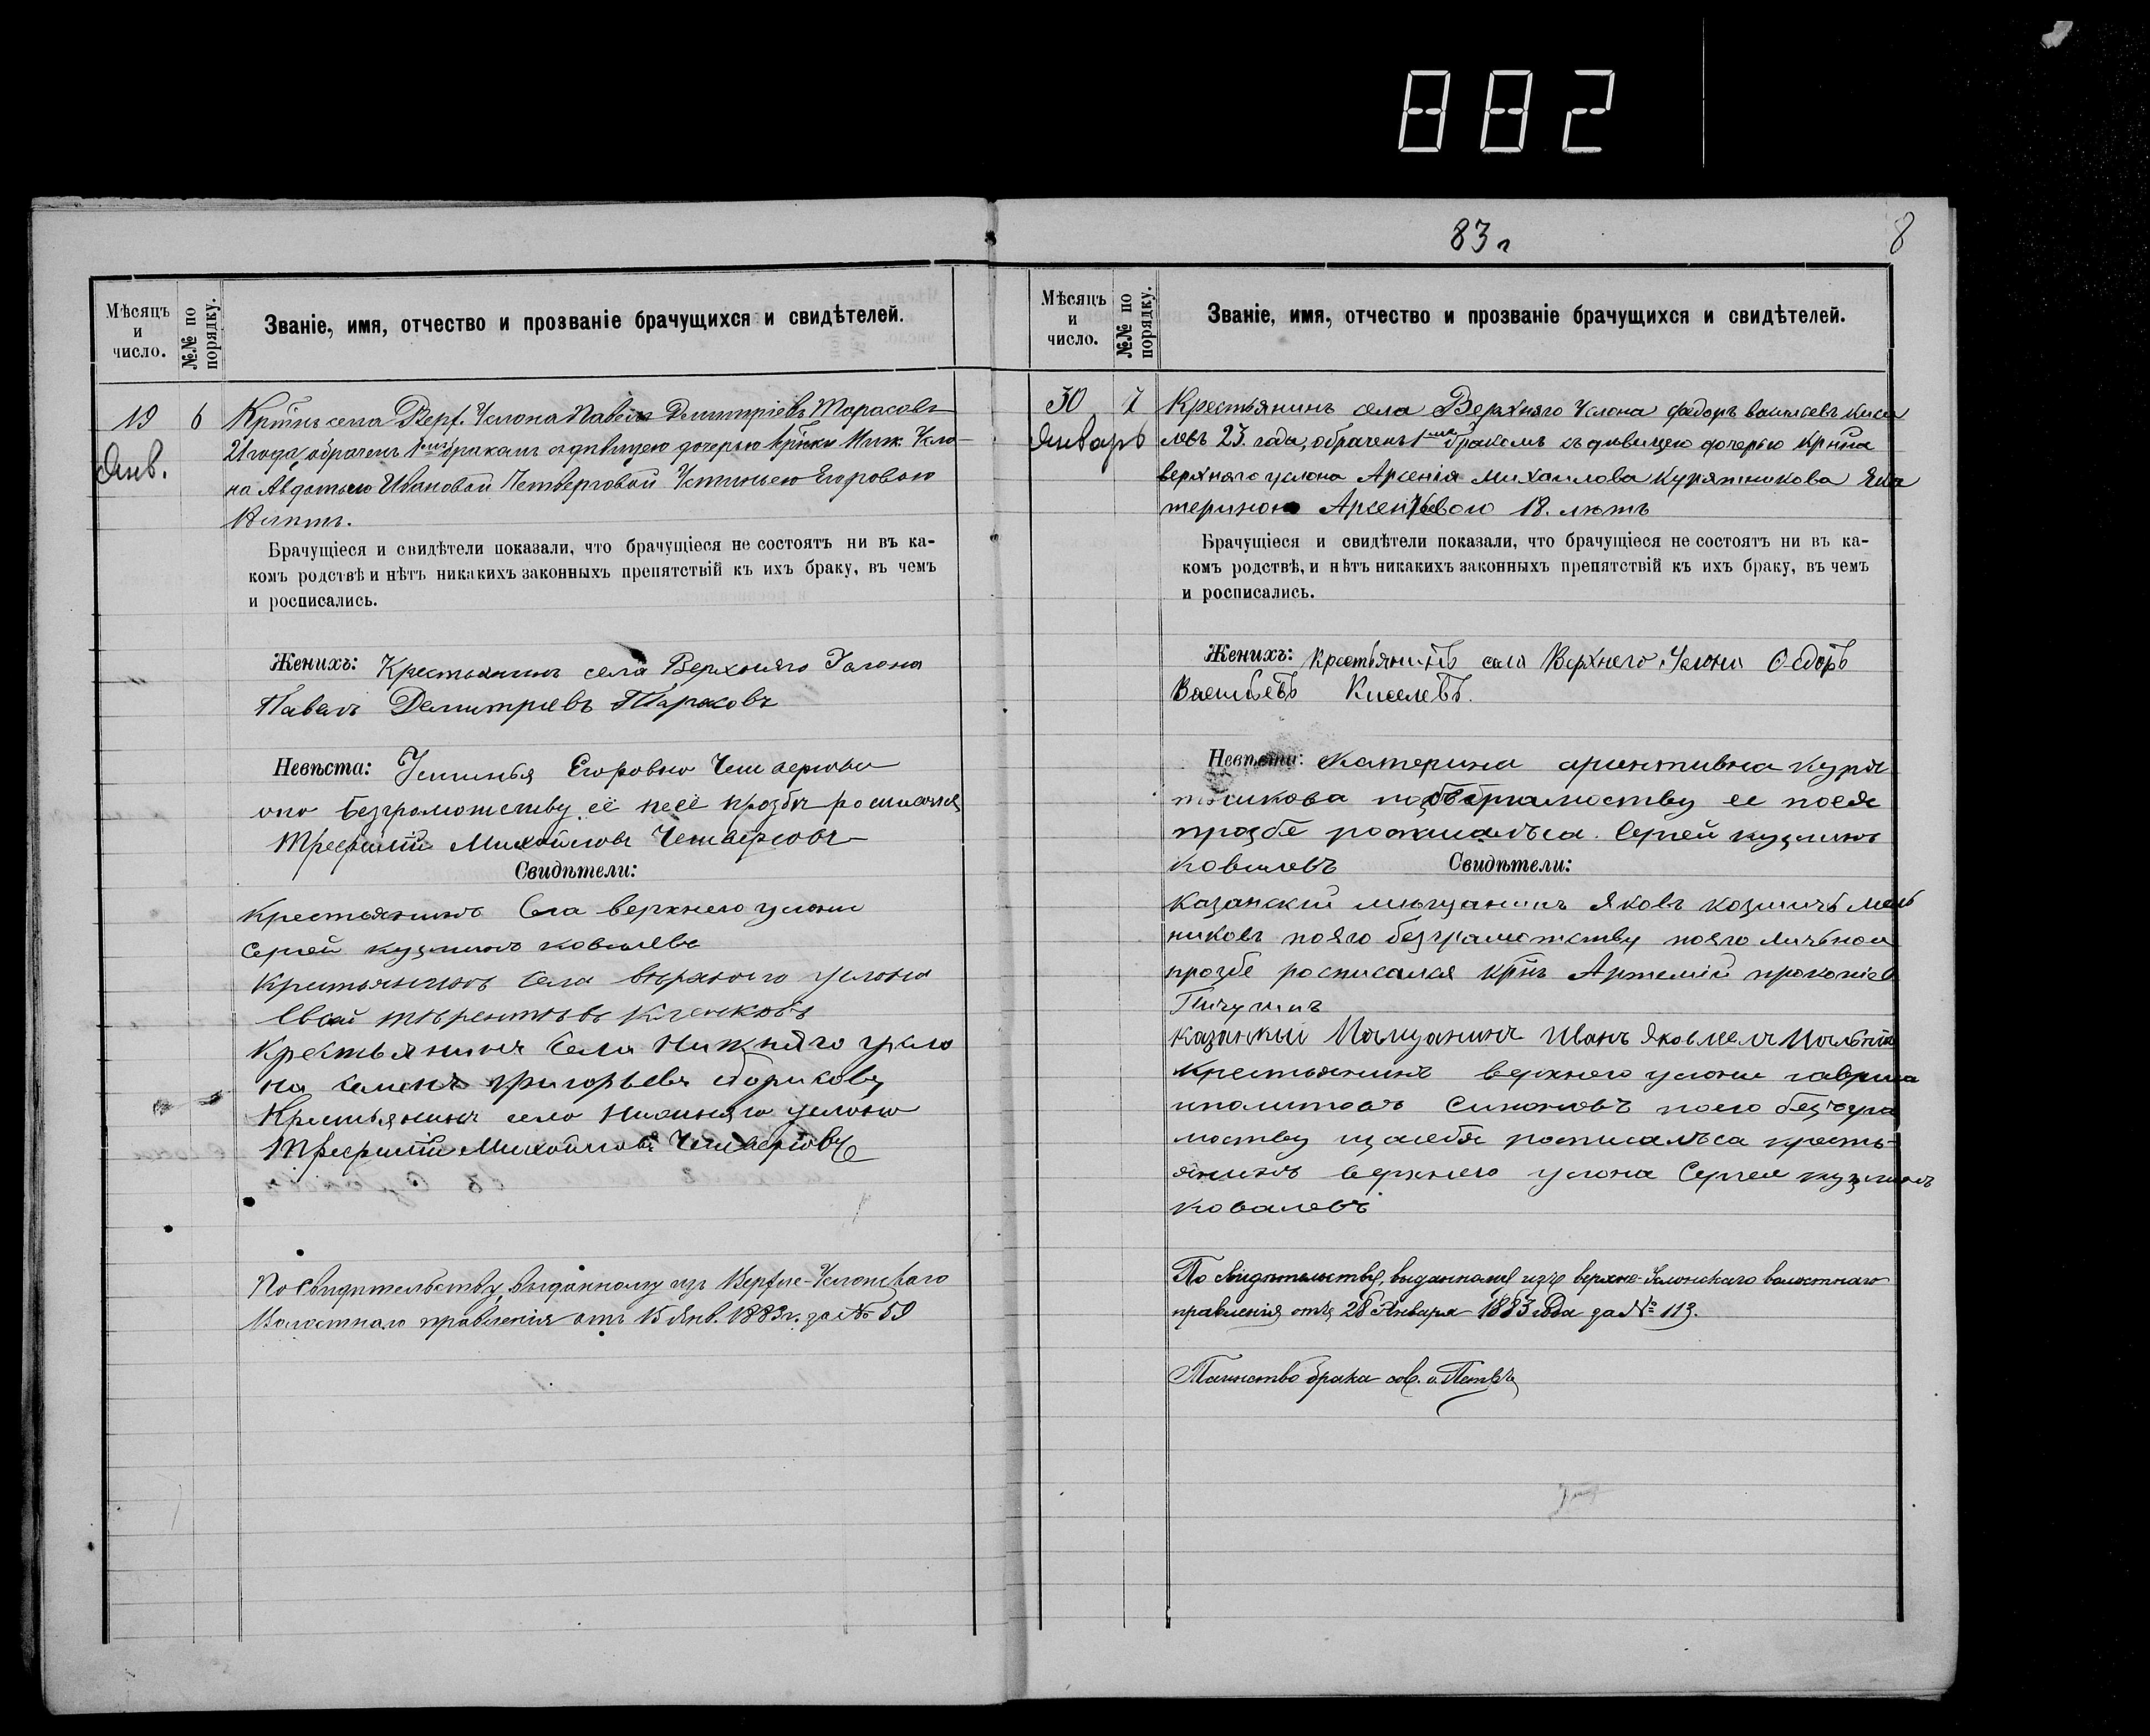 882
83 г
8
Мѣсяцъ и число.
№№ по порядку.
Званіе, имя, отчество и прозваніе брачущихся и свидѣтелей.
19 6 Кр̃тнъ села Верх. Услона Павелъ Димитріевъ Тарасовъ
Янв. 21 года, обрачен 1мъ бракомъ съ дѣвицею дочерью кр̃тнки Ниж. Усло-
на Авдотьи Ивановой Четверговой Устиньею Егоровою
лѣтъ.
Брачущіеся и свидѣтели показали, что брачущіеся не состоятъ ни въ ка-
комъ родствѣ и нѣтъ никакихъ законныхъ препятствій къ ихъ браку, въ чемъ
и росписались.
Женихъ: Крестьянинъ села Верхняго Услона
Павелъ Демитриевъ Тарасовъ
Невѣста: Устинья Егоровно Четвергова
ано безграмотству её пеё прозбы росписался
Трефилий Михайловъ Четверговъ
Свидѣтели:
крестьянинъ Села верхнего услони
Сергей кузминъ ковалевъ
Кристьянинъ Села верхнего услона
Крестьянинъ Села Нижняго усло
на Семенъ Григорьевъ
Крестьянинъ село Нижняго услоно
Трефилий Михойловъ Четверговъ
По свидѣтельству, выданному изъ Верхне-Услонскаго
Волостнаго правленія отъ 15 Янв. 1883 г. за № 59
Мѣсяцъ и число.
№№ по порядку.
Званіе, имя, отчество и прозваніе брачущихся и свидѣтелей.
30 7 Крестьянинъ села Верхняго Услона Федоръ васильевъ кисе
Январь левъ 23. года, обраченъ 1мъ бракомъ съ дѣвицею дочерью кр̃нина
верхняго услона Арсенія Михаилова Курятникова Ека
териною Арсеньевою 18. лѣтъ
Брачущіеся и свидѣтели показали, что брачущіеся не состоятъ ни въ ка-
комъ родствѣ, и нѣтъ никакихъ законныхъ препятствій къ ихъ браку, въ чемъ
и росписались.
Женихъ: крестьянинъ села Верхнего Услона Ѳедоръ
Васильевъ Киселевъ.
Невѣста: Катерина куря
тникова ее поея
прозбе Сергей кузминъ
ковалевъ Свидѣтели:
казанский мещанинъ Яковъ козмичъ мель
никовъ пояго безграмотству пояго личьной
прозбе росписался кр̃нъ Артемій прокопіев
Пичугинъ
казанкий Мещанинъ Иванъ
Крестьянинъ верхнего услони гаврила
иполитовъ поего безгра
мотству росписалъса кресть-
янинъ верхнего услона Сергей кузминъ
ковалевъ
По свидѣтельству, выданному изъ верхне-Услонскаго волостнаго
правленія отъ 28 Января 1883 года за № 113.
Таинство брака сов. о. Петръ